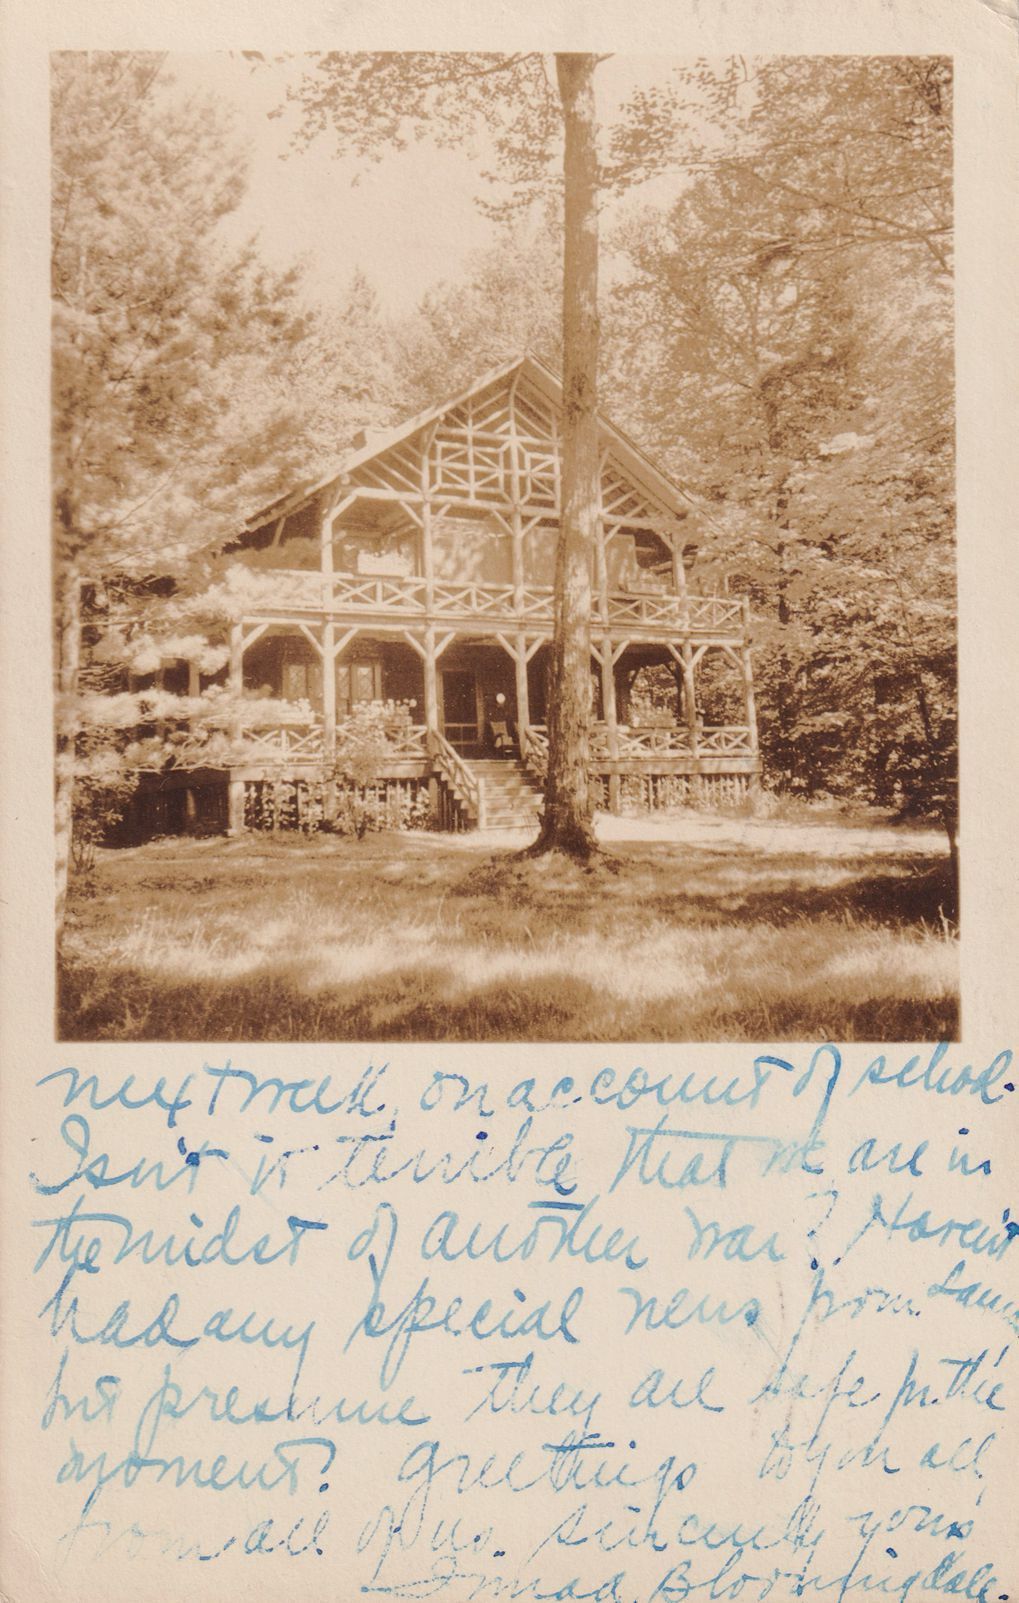 next week, on account of school.
Isn't it terrible that we are in
the midst of another war? Haven't
had any special news from
but presume they are safe for the
moment? Greetings to you all,
from all of us. Sincerely yours
Bloomingdale.